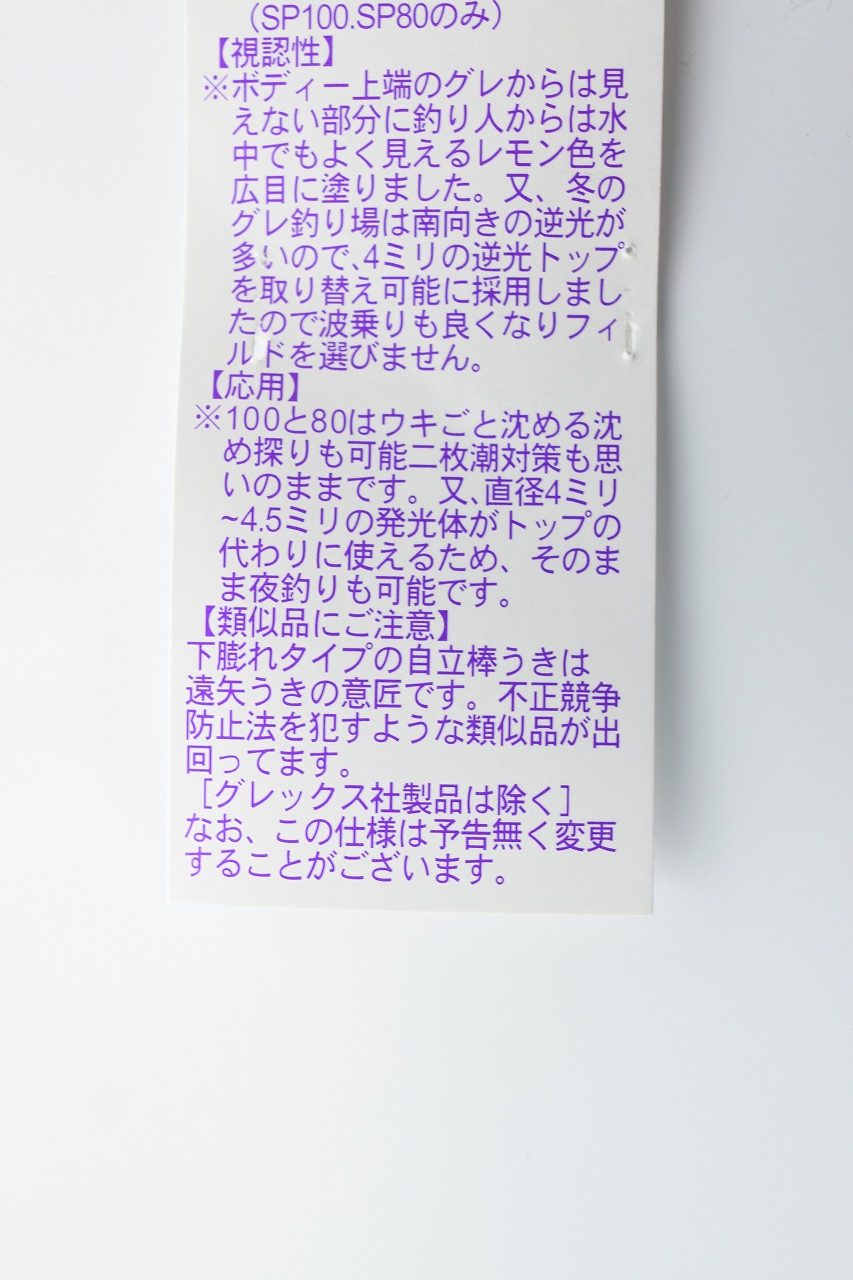 （SP100.SP80のみ）
【視認性】
※ボディー上端のグレからは見
えない部分に釣り人からは水
中でもよく見えるレモン色を
広目に塗りました。又、冬の
グレ釣り場は南向きの逆光が
多いので、4ミリの逆光トップ
を取り替え可能に採用しまし
たので波乗りも良くなりフィ
ルドを選びません。
【応用】
※100と80はウキごと沈める沈
め探りも可能二枚潮対策も思
いのままです。又、直径4ミリ
~4.5ミリの発光体がトップの
代わりに使えるため、そのま
ま夜釣りも可能です。
【類似品にご注意】
下膨れタイプの自立棒うきは
遠矢うきの意匠です。不正競争
防止法を犯すような類似品が出
回ってます。
［グレックス社製品は除く］
なお、この仕様は予告無く変更
することがございます。